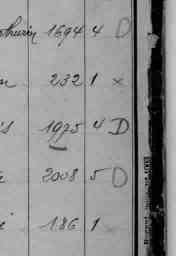 thurin 1694 4 D
232 1 x
s 1975 4 D
2008 5 D
186 1